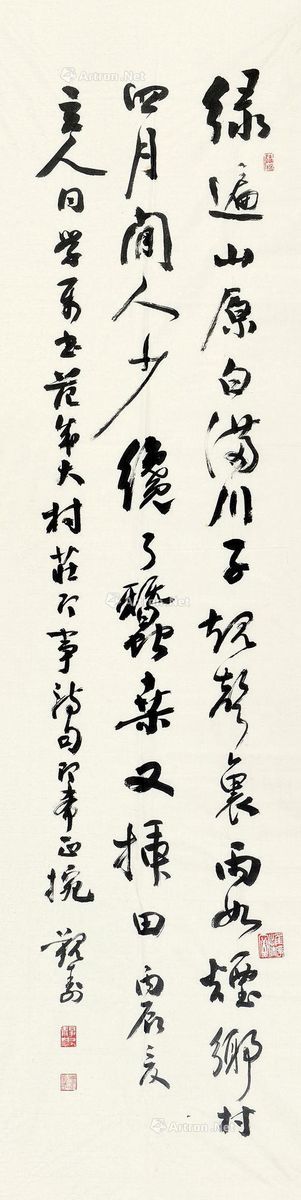 绿遍山原白滿川子規聲裏雨如煙鄉村
四月閒人少纔了蠶桑又插田 丙辰夏
立人同学属书范成大村莊即事詩句即希正捥 觐壽
Artron.Net
Artron.Net